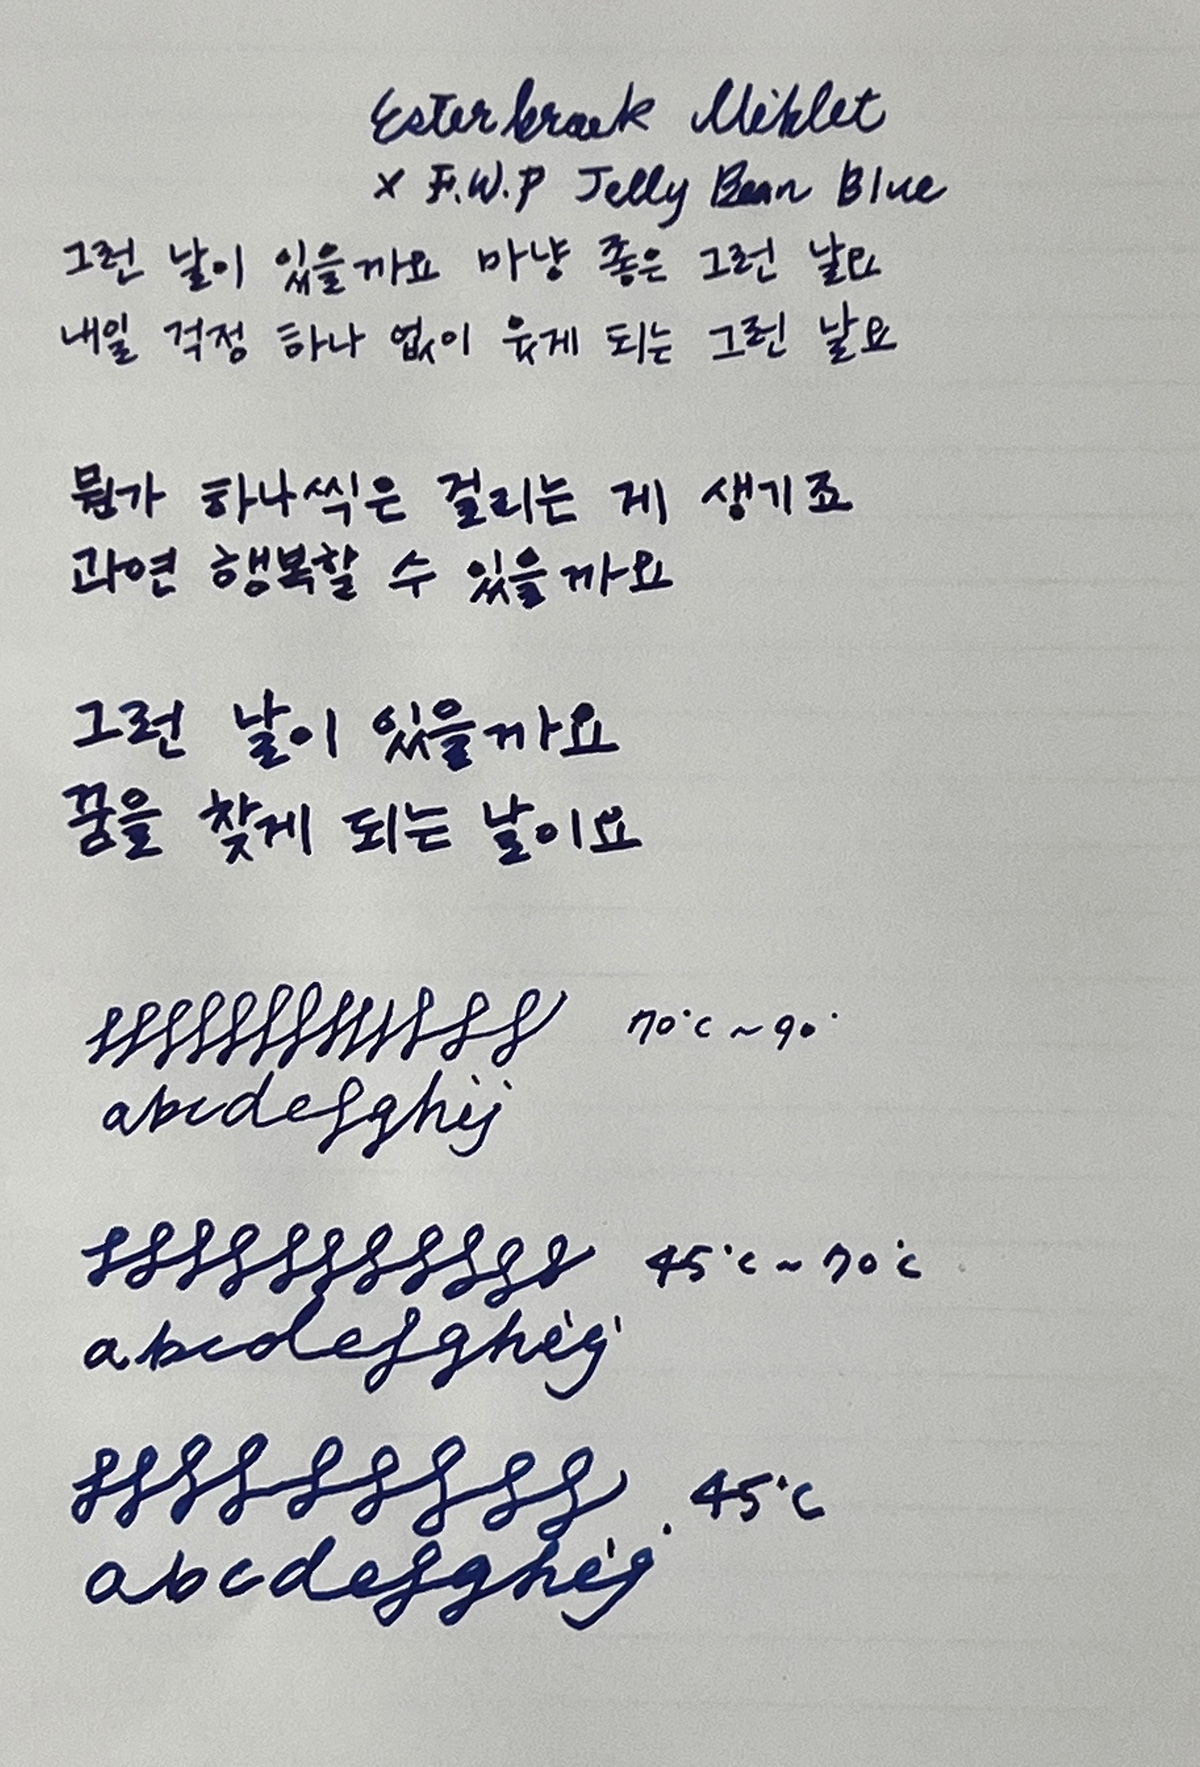 Esterbrook Niblet
x F.W.P Jelly Bean Blue
그런 날이 있을까요 마냥 좋은 그런 날요
내일 걱정 하나 없이 웃게 되는 그런 날요
뭔가 하나씩은 걸리는 게 생기죠
과연 행복할 수 있을까요
그런 날이 있을까요
꿈을 찾게 되는 날이요
70°c ~ 90°
abcdefghij
45°c ~ 70°c
abcdefghij
45°c
abcdefghij